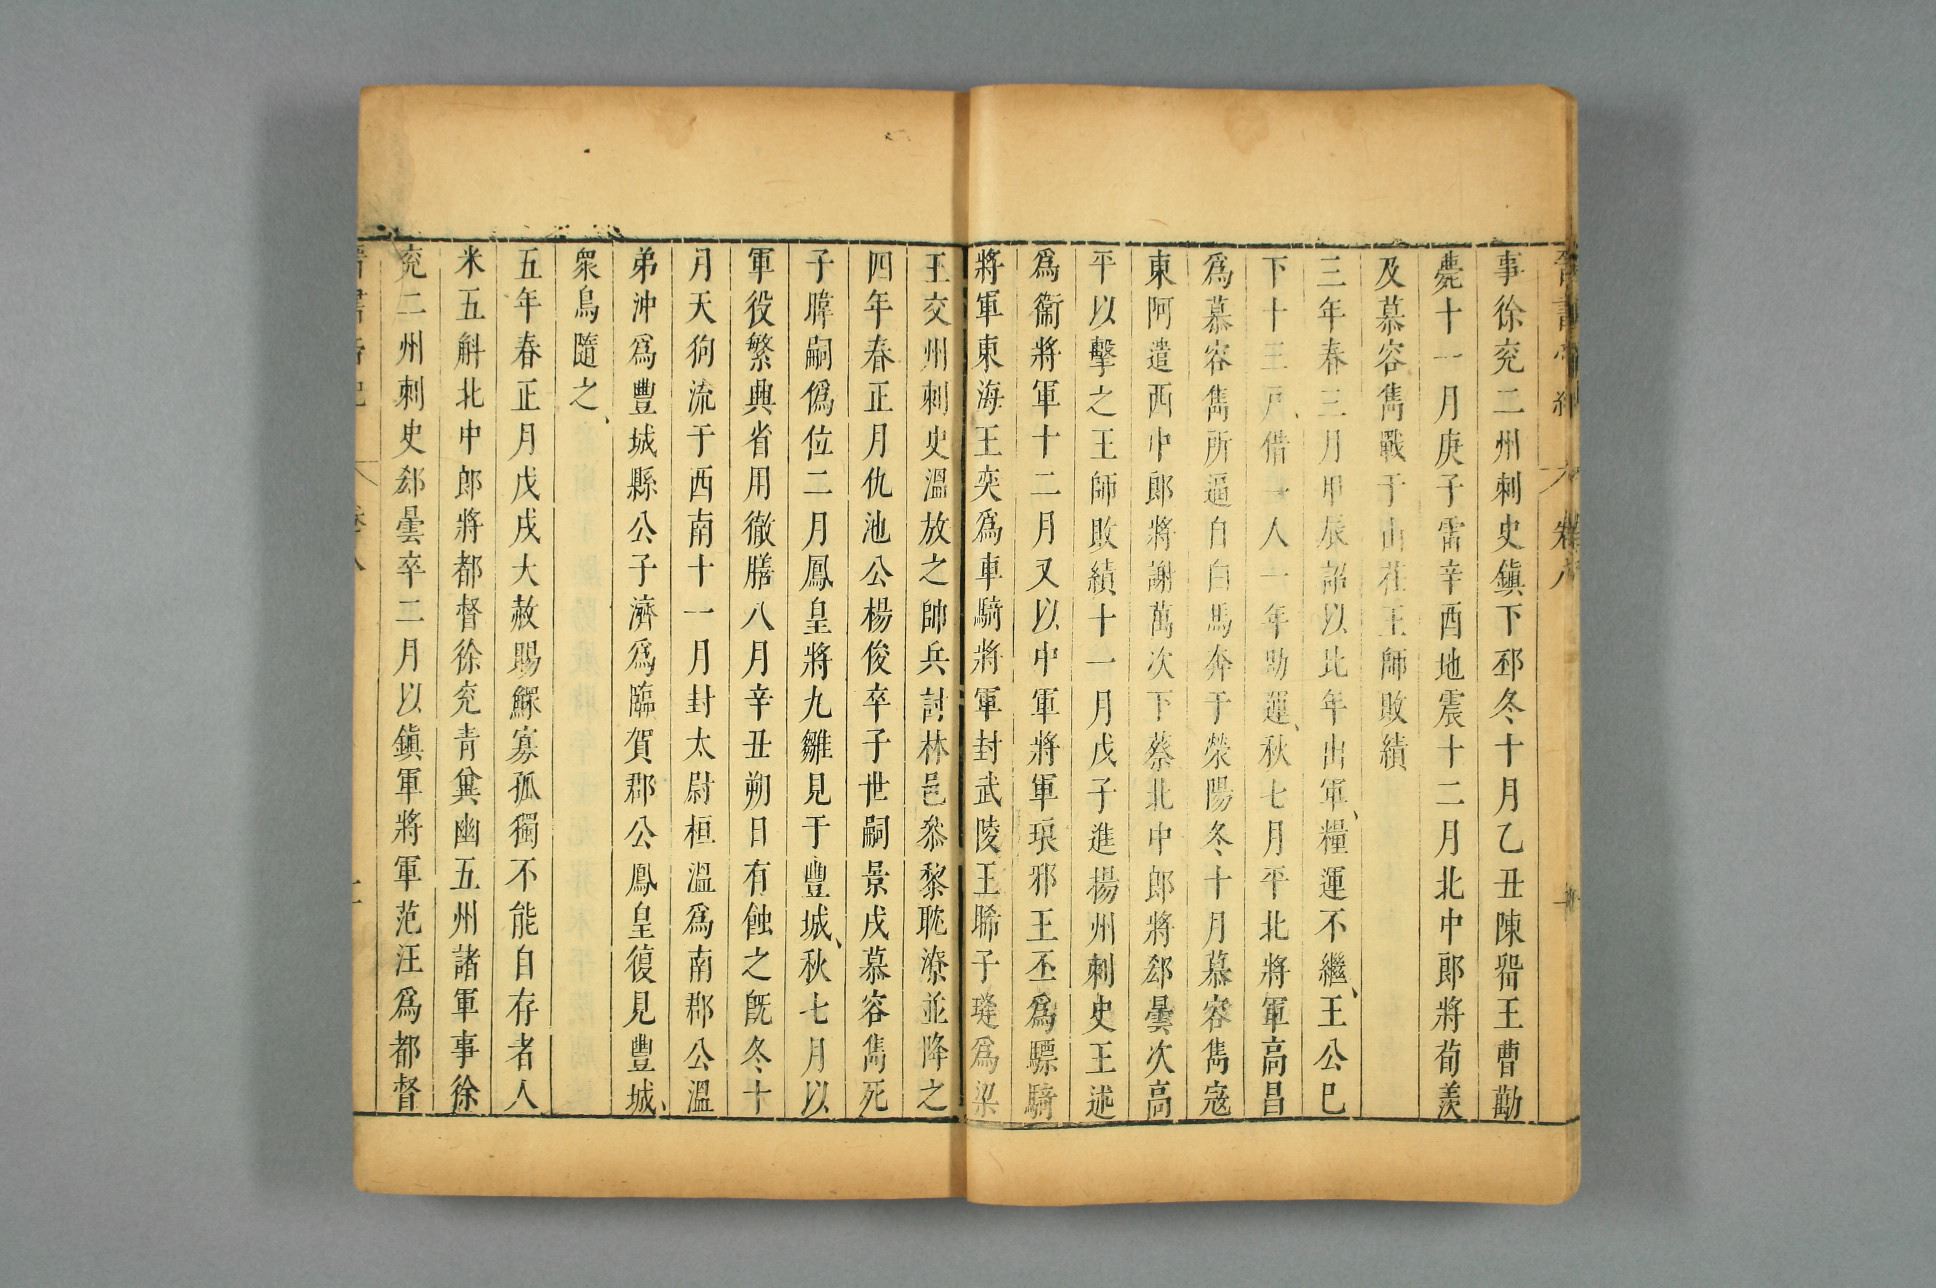 事徐兖二州刺史鎮下邳冬十月乙丑陳畱王曹勱
薨十一月庚子雷辛酉地震十二月北中郎將荀羨
及慕容雋戰于山茌王師敗績
三年春三月甲辰詔以比年出軍糧運不繼王公已
下十三戶借一人一年助運秋七月平北將軍高昌
爲慕容雋所逼自白馬奔于滎陽冬十月慕容雋寇
東阿遣西中郎將謝萬次下蔡北中郎將郄曇次高
平以擊之王師敗績十一月戊子進揚州刺史王述
爲衞將軍十二月又以中軍將軍琅邪王丕爲驃騎
將軍東海王奕爲車騎將軍封武陵王晞子㻱爲梁
王交州刺史溫放之帥兵討林邑叅黎耽潦並降之
四年春正月仇池公楊俊卒子世嗣景戌慕容雋死
子暐嗣僞位二月鳳皇將九雛見于豐城秋七月以
軍役繁興省用徹膳八月辛丑朔日有蝕之旣冬十
月天狗流于西南十一月封太尉桓溫爲南郡公溫
弟沖爲豐城縣公子濟爲臨賀郡公鳳皇復見豐城
衆鳥隨之
五年春正月戊戌大赦賜鰥寡孤獨不能自存者人
米五斛北中郎將都督徐兖青冀幽五州諸軍事徐
兖二州刺史郄曇卒二月以鎮軍將軍范汪爲都督